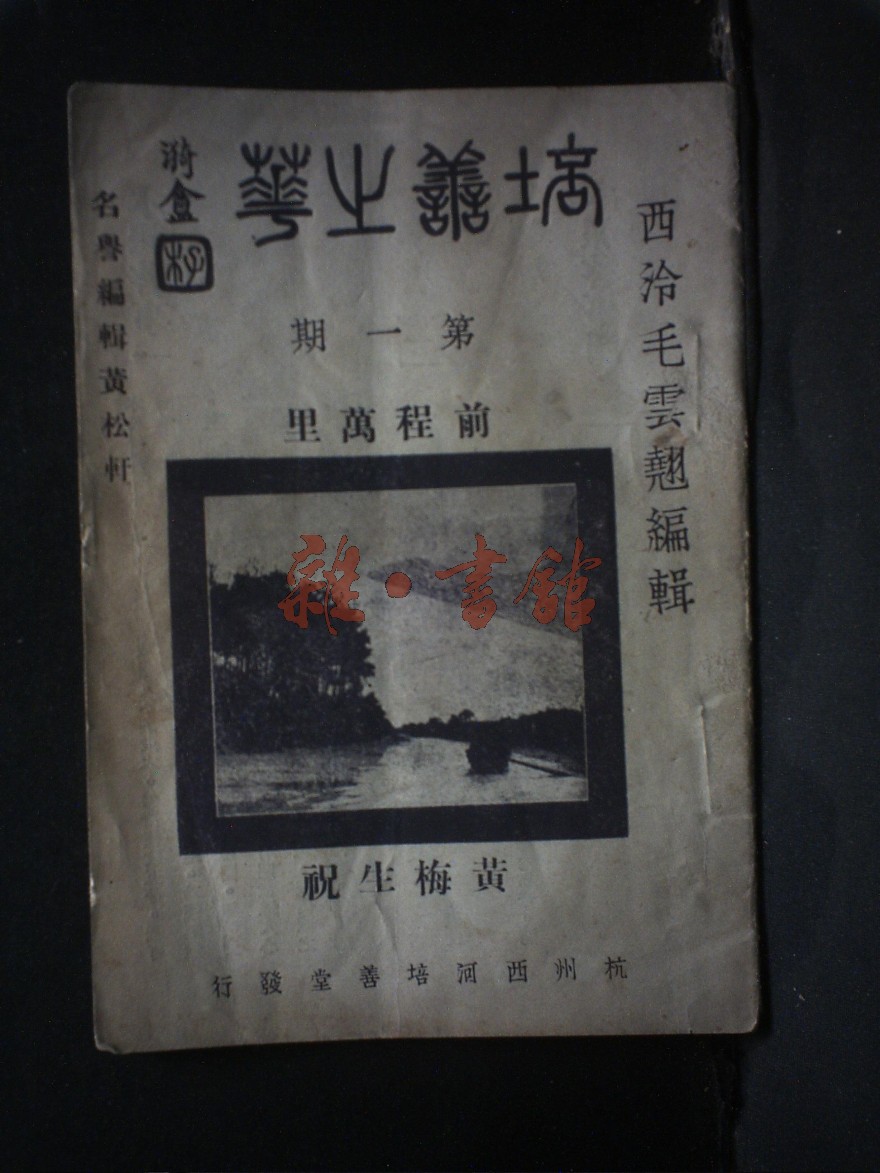 培善之華
西泠毛雲翹編輯
第一期
前程萬里
名譽編輯黃松軒
雜·書館
黃梅生祝
杭州西河培善堂發行